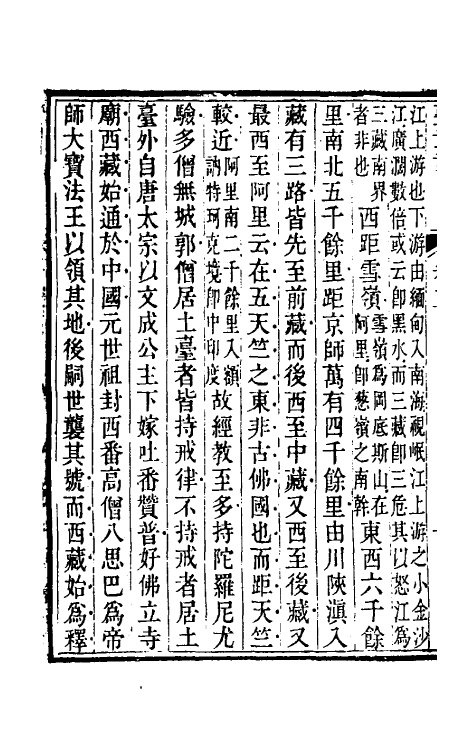 江上游也下游由緬甸入南海視岷江上游之小金沙
江廣濶數倍或云卽黑水而三藏卽三危其以怒江爲
三藏南界者非也西距雪嶺雪嶺爲岡底斯山在阿里卽葱嶺之南幹東西六千餘
里南北五千餘里距京師萬有四千餘里由川陝滇入
藏有三路皆先至前藏而後西至中藏又西至後藏又
最西至阿里云在五天竺之東非古佛國也而距天竺
較近阿里南二千餘里入額訥特珂克境卽中印度故經教至多持陀羅尼尤
驗多僧無城郭僧居土臺者皆持戒律不持戒者居土
臺外自唐太宗以文成公主下嫁吐番贊普好佛立寺
廟西藏始通於中國元世祖封西番高僧八思巴爲帝
師大寶法王以領其地後嗣世襲其號而西藏始爲釋